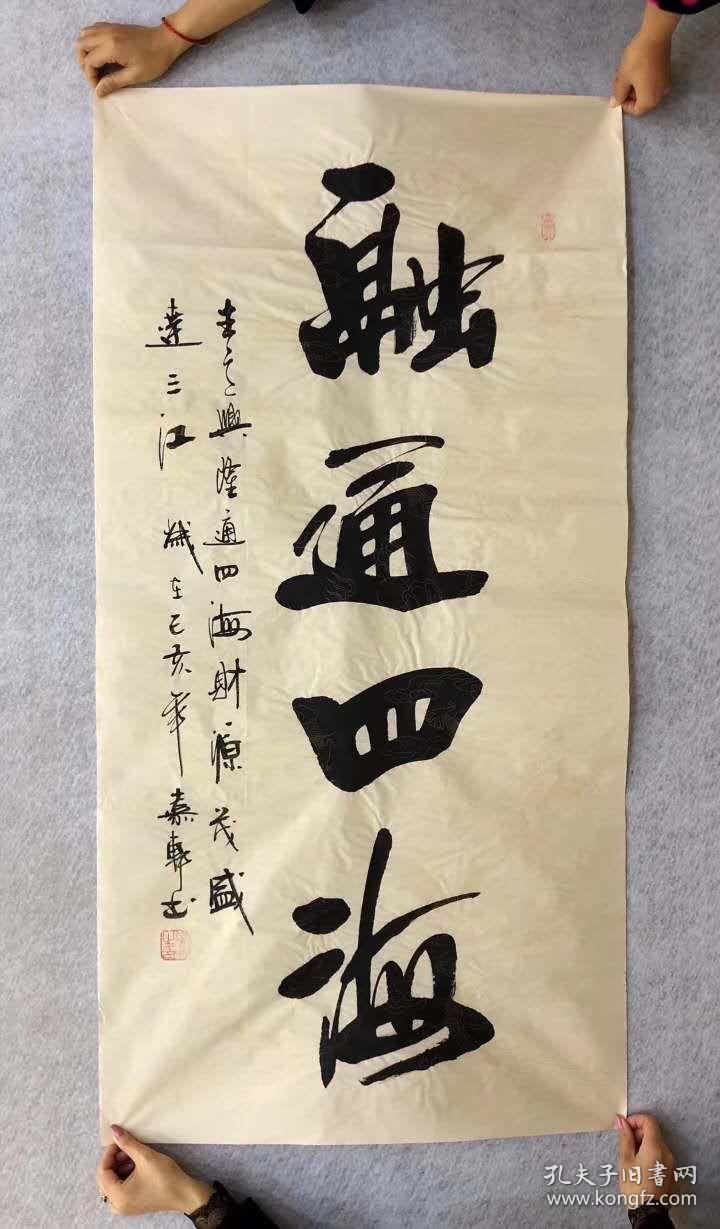 融通四海
生意興隆通四海財源茂盛
達三江 歲在己亥年 嘉軒書
孔夫子旧書网
www.kongfz.com